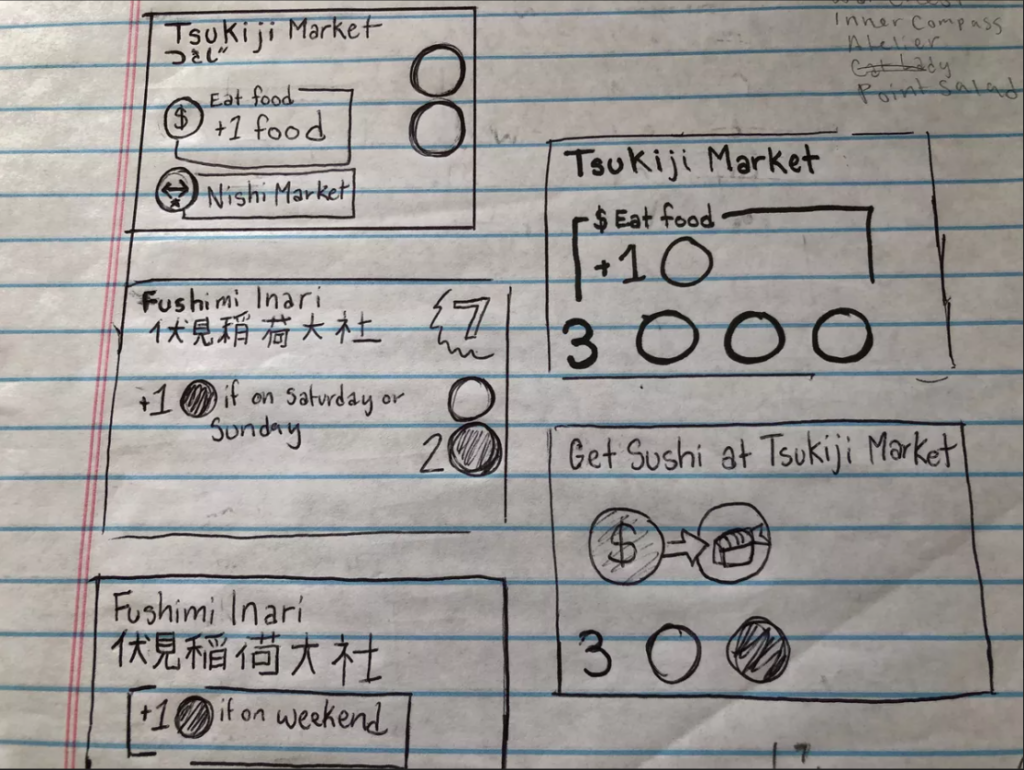 Tsukiji Market
つきじ
Eat food
$ +1 food
Nishi Market
Fushimi Inari
7
伏見稲荷大社
+1 if on Saturday or
Sunday
2
Fushimi Inari
伏見稲荷大社
+1 if on weekend
Inner Compass
Atelier
Cat Lady
Point Salad
Tsukiji Market
$ Eat food
+1
3
Get Sushi at Tsukiji Market
$
3